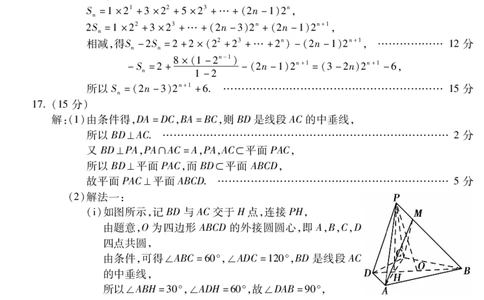 Sₙ=1×2¹+3×2²+5×2³+⋯+(2n-1)2ⁿ,
2Sₙ=1×2²+3×2³+⋯+(2n-3)2ⁿ+(2n-1)2ⁿ⁺¹,
相减,得Sₙ-2Sₙ=2+2×(2²+2³+⋯+2ⁿ)-(2n-1)2ⁿ⁺¹, ⋯⋯⋯⋯⋯⋯ 12 分
-Sₙ=2+8×(1-2ⁿ⁻¹)/(1-2)-(2n-1)2ⁿ⁺¹=(3-2n)2ⁿ⁺¹-6,
所以 Sₙ=(2n-3)2ⁿ⁺¹+6. ⋯⋯⋯⋯⋯⋯⋯⋯⋯⋯⋯⋯⋯⋯ 15 分
17. (15 分)
解:(1)由条件得,DA=DC,BA=BC,则 BD 是线段 AC 的中垂线,
所以 BD⊥AC. ⋯⋯⋯⋯⋯⋯⋯⋯⋯⋯⋯⋯⋯⋯⋯⋯⋯⋯ 2 分
又 BD⊥PA,PA∩AC=A,PA,AC⊂平面 PAC,
所以 BD⊥平面 PAC,而 BD⊂平面 ABCD,
故平面 PAC⊥平面 ABCD. ⋯⋯⋯⋯⋯⋯⋯⋯⋯⋯⋯⋯⋯⋯ 5 分
(2)解法一:
(ⅰ)如图所示,记 BD 与 AC 交于 H 点,连接 PH,
由题意,O 为四边形 ABCD 的外接圆圆心,即 A,B,C,D
四点共圆,
由条件,可得∠ABC=60°,∠ADC=120°,BD 是线段 AC
的中垂线,
所以∠ABH=30°,∠ADH=60°,故∠DAB=90°,
P
M
C
O
D
H
B
A